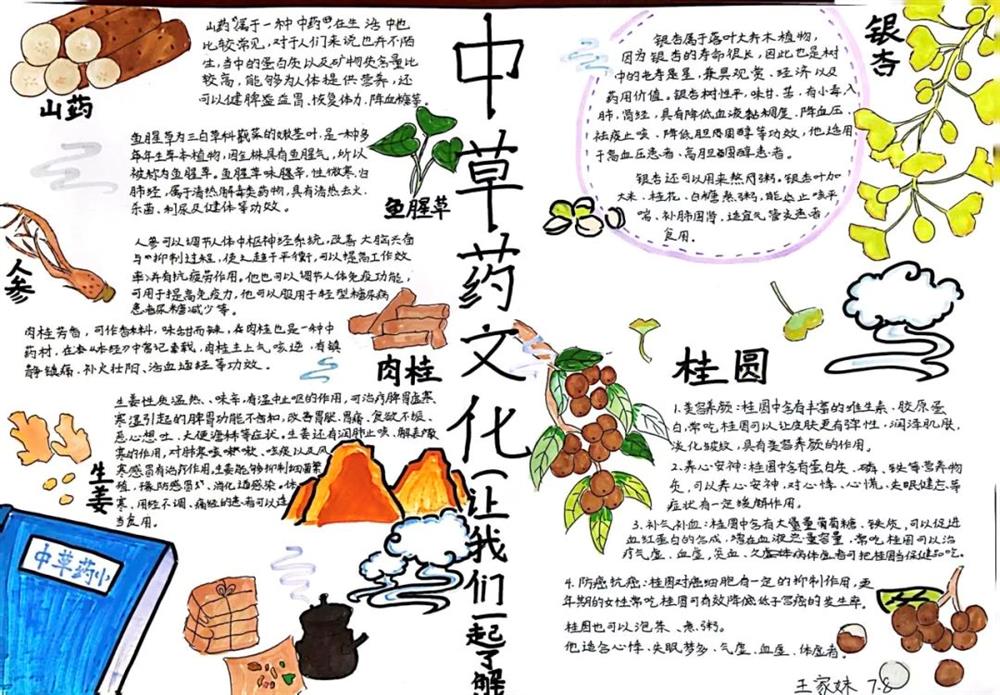 中草药文化(让我们一起了解
山药
山药"属于一种中药"在生活中也
比较常见,对于人们来说也并不陌
生,当中的蛋白质以及矿物质含量比
较高,能够为人体提供营养,还
可以健脾益胃、恢复体力、降血糖等。
鱼腥草为三白草科蕺菜的嫩茎叶,是一种多
年生草本植物,因全株具有鱼腥气,所以
被称为鱼腥草。鱼腥草味腥辛,性微寒,归
肺经,属于清热解毒类药物,具有清热去火、
杀菌、利尿及健体等功效。
鱼腥草
人参
人参可以调节人体中枢神经系统,改善大脑兴奋
与抑制过程,使之趋于平衡,可以提高工作效
率并有抗疲劳作用,他也可以调节人体免疫功能,
可用于提高免疫力,他可以服用于轻型糖尿病
患者尿糖减少等。
肉桂芳香,可作香料,味甜而辣,在肉桂也是一种中
药材,在《本经》中客记载,肉桂主上气咳逆,有镇
静镇痛、补火壮阳、活血通经等功效。
肉桂
生姜
生姜性质温热、味辛,有温中止呕的作用,可治疗脾胃虚寒
寒湿引起的脾胃功能不告知,改善胃胀、胃痛、食欲不振、
恶心想吐、大便溏稀等症状。生姜还有润肺止咳、解表散
寒的作用,对肺寒咳嗽、咳痰以及风
寒感冒有治疗作用。生姜能够抑制细菌繁
殖,预防感冒、消化道感染。体
寒、月经不调、痛经的患者可以适
当食用。
中草药小
银杏
银杏属于落叶大乔木植物,
因为银杏的寿命很长,因此也是树
中的老寿星,兼具观赏、经济以及
药用价值。银杏树性平,味甘、苦,有小毒,入
肺,肾经,具有降低血液黏稠度、降血压、
祛痰止咳、降低胆固醇等功效,他适用
于高血压患者、高胆固醇患者。
银杏还可以用来熬肉粥。银杏叶加
大米、桂花、白糖熬粥,能够止咳平
喘、补肺固肾,适宜气管炎患者
食用。
桂圆
1.美容养颜:桂圆中含有丰富的维生素、胶原蛋
白,常吃桂圆可以让皮肤更有弹性,润泽肌肤,
淡化皱纹,具有美容养颜的作用。
2.养心安神:桂圆中含有蛋白质、磷、铁等营养物
质,可以养心安神,对心悸、心慌、失眠健忘等
症状有一定缓解作用。
3.补气补血:桂圆中含有大量葡萄糖、铁质,可以促进
血红蛋白的合成,增在血液容量,常吃桂圆可以治
疗气虚、血虚,贫血、久虚体病体虚者可把桂圆当保健品吃。
4.防癌抗癌:桂圆对癌细胞有一定的抑制作用,更
年期的女性常吃桂圆可有效降低低子宫癌的发生率。
桂圆也可以泡茶、煮粥。
他适合心悸、失眠梦多、气虚、血虚、体虚者。
王家妹 7.8